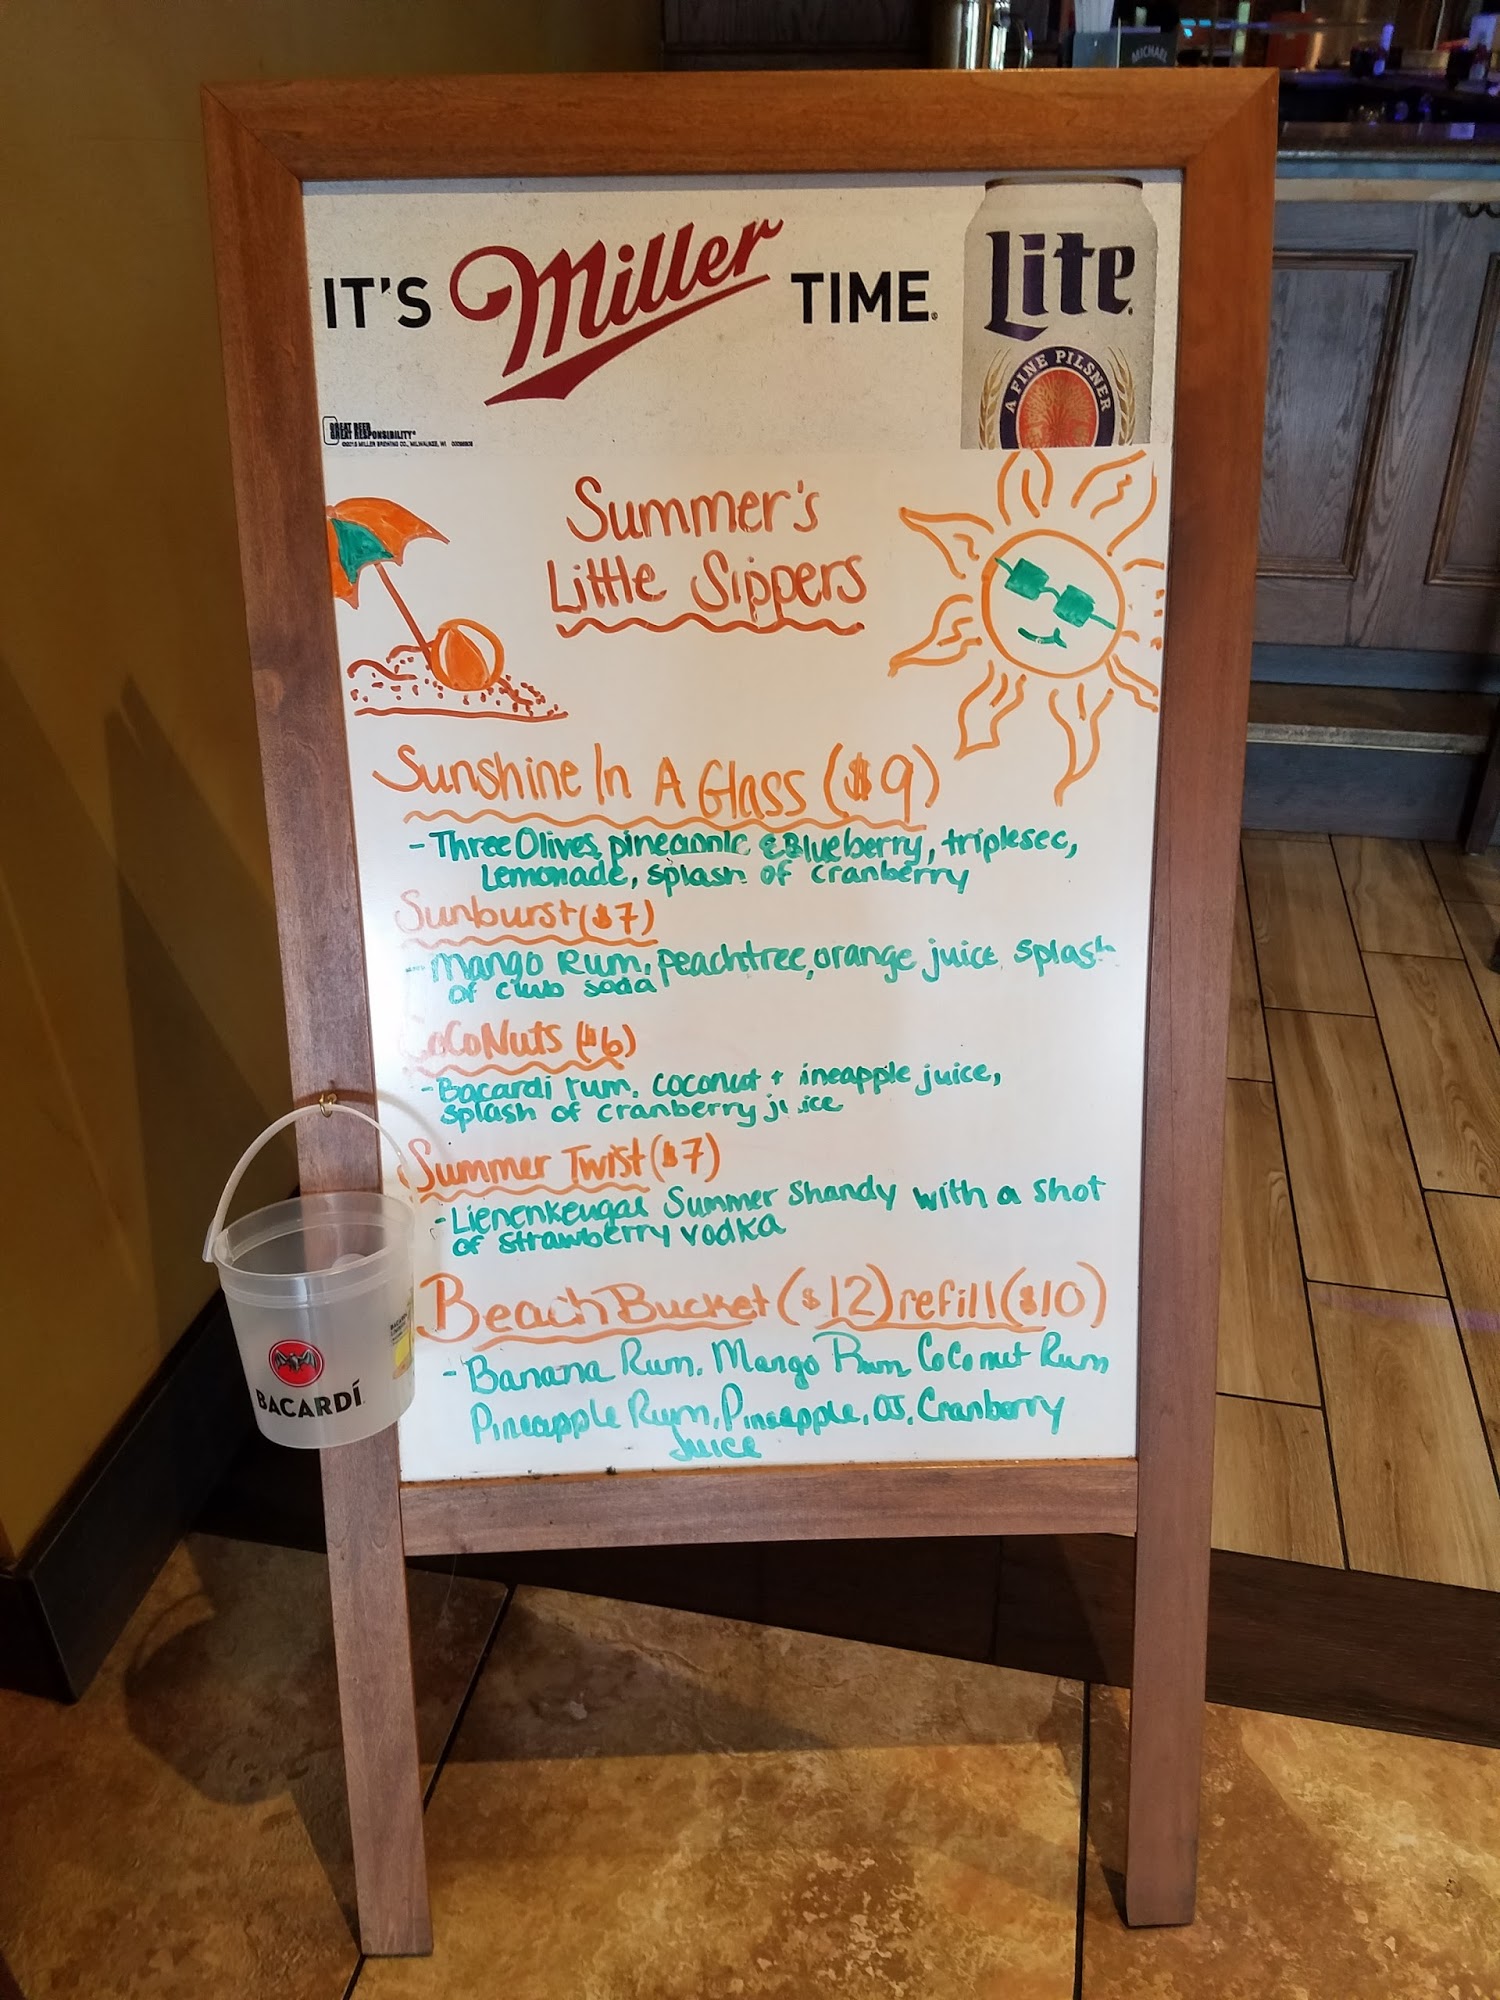 MICHAEL
IT'S Miller TIME®
Lite
A FINE PILSNER
GREAT BEER
GREAT RESPONSIBILITY®
MILLER BREWING CO., MILWAUKEE, WI
Summer's
Little Sippers
Sunshine In A Glass ($9)
- Three Olives, pineapple & Blueberry, triplesec,
Lemonade, splash of cranberry
Sunburst ($7)
- Mango Rum, peachtree, orange juice, splash
of club soda
CocoNuts ($6)
- Bacardi rum, coconut + ineapple juice,
splash of cranberry juice
Summer Twist ($7)
- Lienenkeugal Summer Shandy with a shot
of strawberry vodka
Beach Bucket ($12) refill ($10)
- Banana Rum, Mango Rum, Coconut Rum
Pineapple Rum, Pineapple, OJ, Cranberry
Juice
BACARDÍ